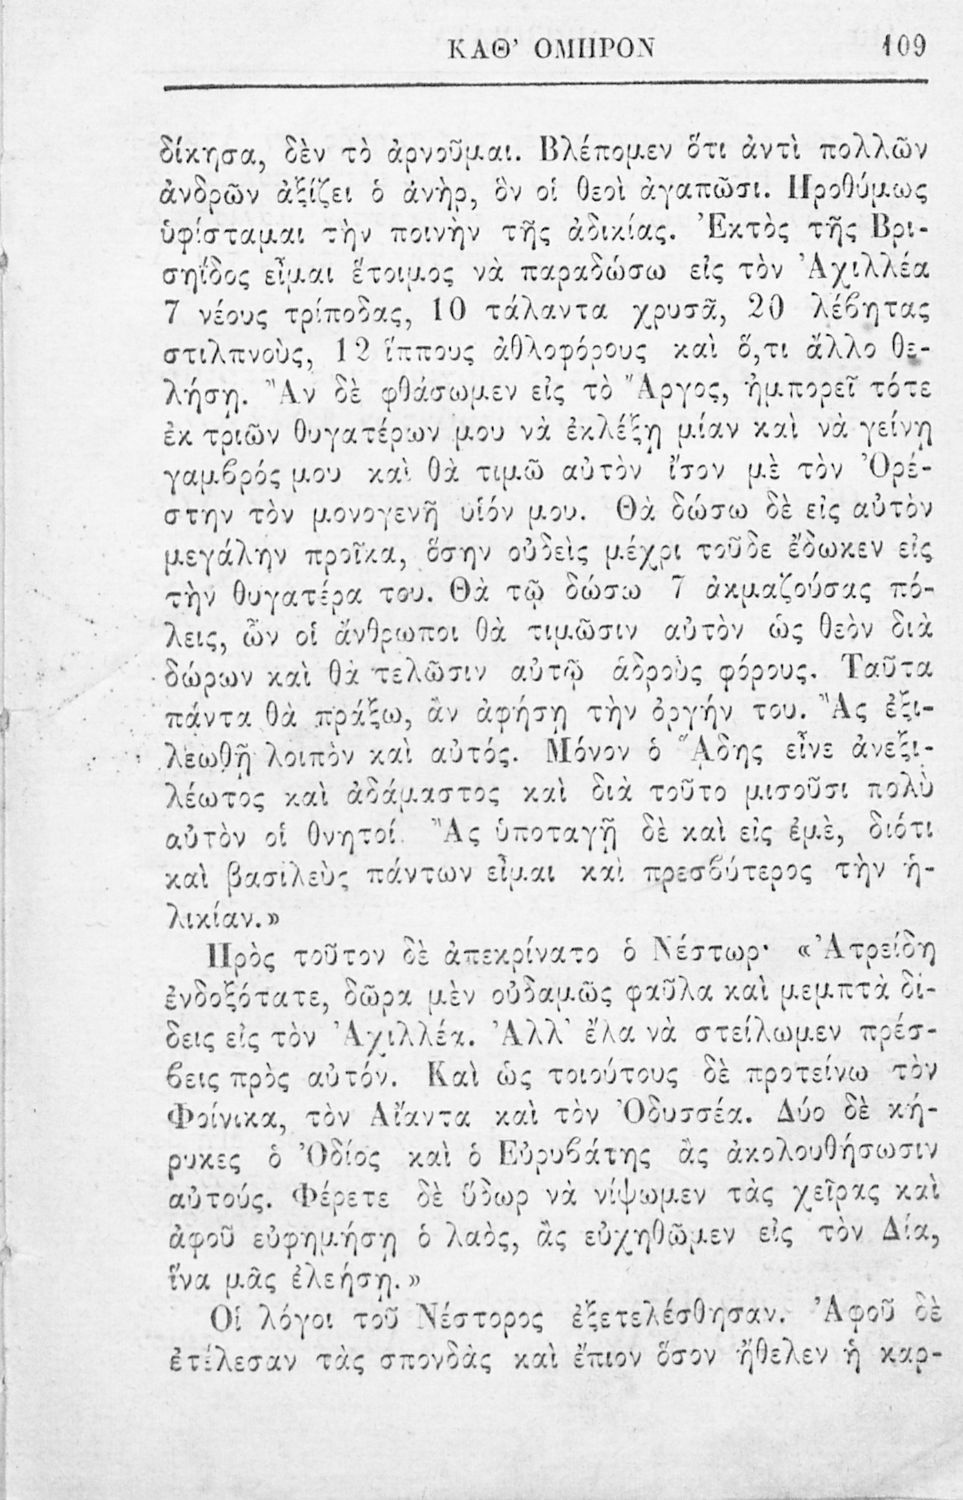 ΚΑΘ’ ΟΜΗΡΟΝ 109
δίκησα, δὲν τὸ ἀρνοῦμαι. Βλέπομεν ὅτι ἀντὶ πολλῶν
ἀνδρῶν ἀξίζει ὁ ἀνὴρ, ὃν οἱ θεοὶ ἀγαπῶσι. Προθύμως
ὑφίσταμαι τὴν ποινὴν τῆς ἀδικίας. Ἐκτὸς τῆς Βρι-
σηΐδος εἶμαι ἕτοιμος νὰ παραδώσω εἰς τὸν Ἀχιλλέα
7 νέους τρίποδας, 10 τάλαντα χρυσᾶ, 20 λέβητας
στιλπνοὺς, 12 ἵππους ἀθλοφόρους καὶ ὅ,τι ἄλλο θε-
λήσῃ. Ἂν δὲ φθάσωμεν εἰς τὸ Ἄργος, ἠμπορεῖ τότε
ἐκ τριῶν θυγατέρων μου νὰ ἐκλέξῃ μίαν καὶ νὰ γείνῃ
γαμβρός μου καὶ θὰ τιμῶ αὐτὸν ἴσον μὲ τὸν Ὀρέ-
στην τὸν μονογενῆ υἱόν μου. Θὰ δώσω δὲ εἰς αὐτὸν
μεγάλην προῖκα, ὅσην οὐδεὶς μέχρι τοῦδε ἔδωκεν εἰς
τὴν θυγατέρα του. Θὰ τῷ δώσω 7 ἀκμαζούσας πό-
λεις, ὧν οἱ ἄνθρωποι θὰ τιμῶσιν αὐτὸν ὡς θεὸν διὰ
δώρων καὶ θὰ τελῶσιν αὐτῷ ἁδροὺς φόρους. Ταῦτα
πάντα θὰ πράξω, ἂν ἀφήσῃ τὴν ὀργήν του. Ἂς ἐξι-
λεωθῇ λοιπὸν καὶ αὐτός. Μόνον ὁ ᾍδης εἶνε ἀνεξι-
λέωτος καὶ ἀδάμαστος καὶ διὰ τοῦτο μισοῦσι πολὺ
αὐτὸν οἱ θνητοί. Ἂς ὑποταγῇ δὲ καὶ εἰς ἐμὲ, διότι
καὶ βασιλεὺς πάντων εἶμαι καὶ πρεσβύτερος τὴν ἡ-
λικίαν.»
Πρὸς τοῦτον δὲ ἀπεκρίνατο ὁ Νέστωρ· «Ἀτρείδη
ἐνδοξότατε, δῶρα μὲν οὐδαμῶς φαῦλα καὶ μεμπτὰ δί-
δεις εἰς τὸν Ἀχιλλέα. Ἀλλ’ ἔλα νὰ στείλωμεν πρέσ-
βεις πρὸς αὐτόν. Καὶ ὡς τοιούτους δὲ προτείνω τὸν
Φοίνικα, τὸν Αἴαντα καὶ τὸν Ὀδυσσέα. Δύο δὲ κή-
ρυκες ὁ Ὀδίος καὶ ὁ Εὐρυβάτης ἂς ἀκολουθήσωσιν
αὐτούς. Φέρετε δὲ ὕδωρ νὰ νίψωμεν τὰς χεῖρας καὶ
ἀφοῦ εὐφημήσῃ ὁ λαὸς, ἂς εὐχηθῶμεν εἰς τὸν Δία,
ἵνα μᾶς ἐλεήσῃ.»
Οἱ λόγοι τοῦ Νέστορος ἐξετελέσθησαν. Ἀφοῦ δὲ
ἐτέλεσαν τὰς σπονδὰς καὶ ἔπιον ὅσον ἤθελεν ἡ καρ-